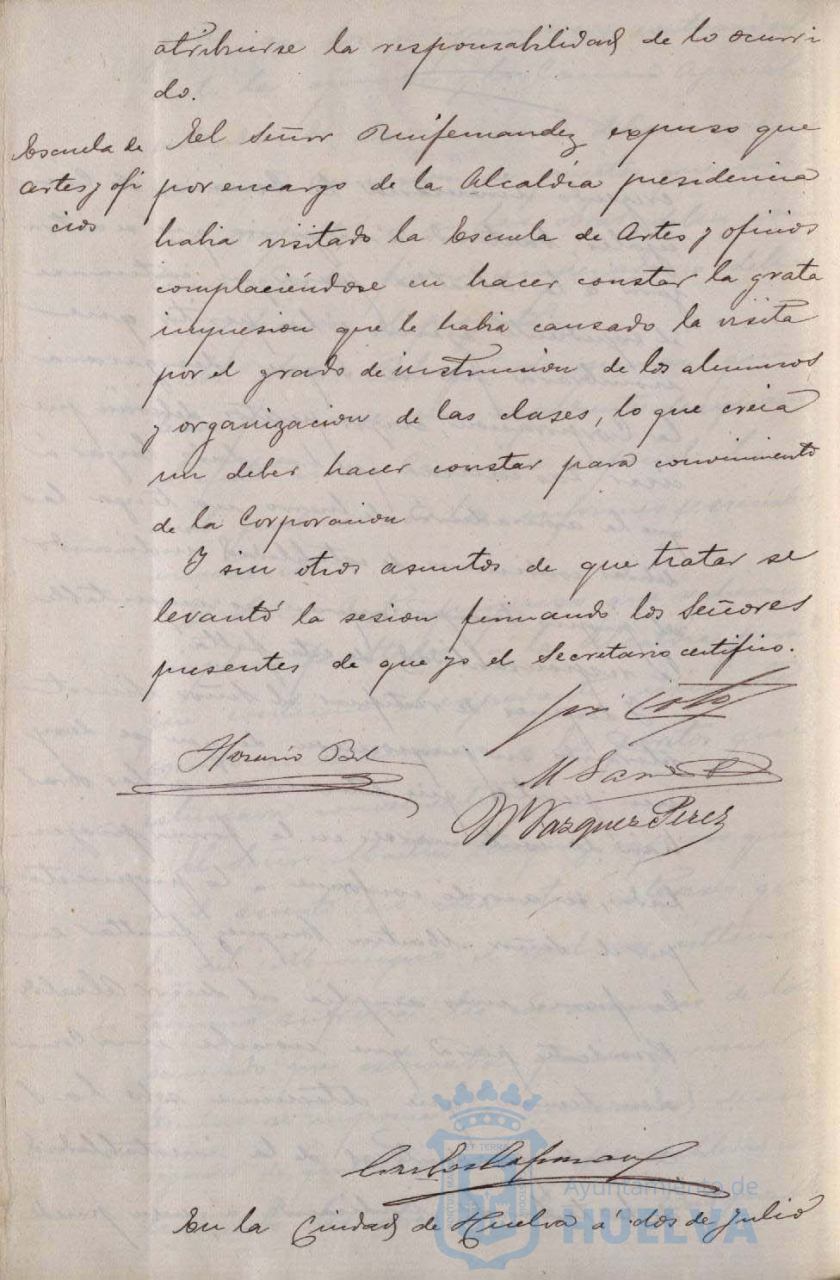 atribuirse la responsabilidad de lo ocurri
do.
Escuela de
artes y ofi
cios
El Señor Ruifernandez expuso que
por encargo de la Alcaldia presidencia
habia visitado la Escuela de Artes y oficios
complaciéndose en hacer constar la grata
impresion que le habia causado la visita
por el grado de instruccion de los alumnos
y organizacion de las clases, lo que creia
un deber hacer constar para convinimento
de la Corporacion
Y sin otros asuntos de que tratar se
levantó la sesion firmando los Señores
presentes de que yo el Secretario certifico.
José Coto
Horacio Bel
M Vazquez Perez
En la Ciudad de Huelva a dos de Julio
Ayuntamiento de
HUELVA